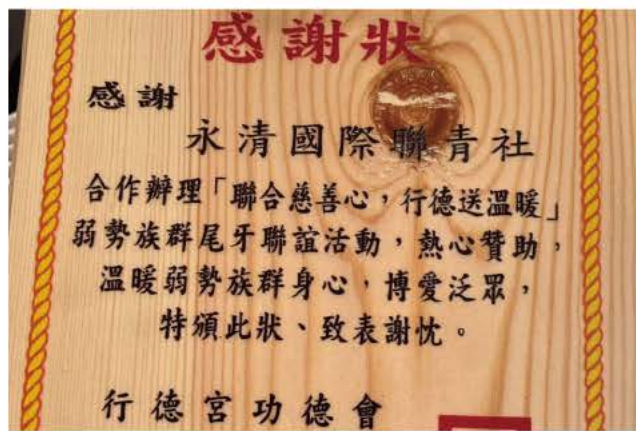 感謝狀
感謝
永清國際聯青社
合作辦理「聯合慈善心,行德送溫暖」
弱勢族群尾牙聯誼活動,熱心贊助,
溫暖弱勢族群身心,博愛泛眾,
特頒此狀、致表謝忱。
行德宮功德會